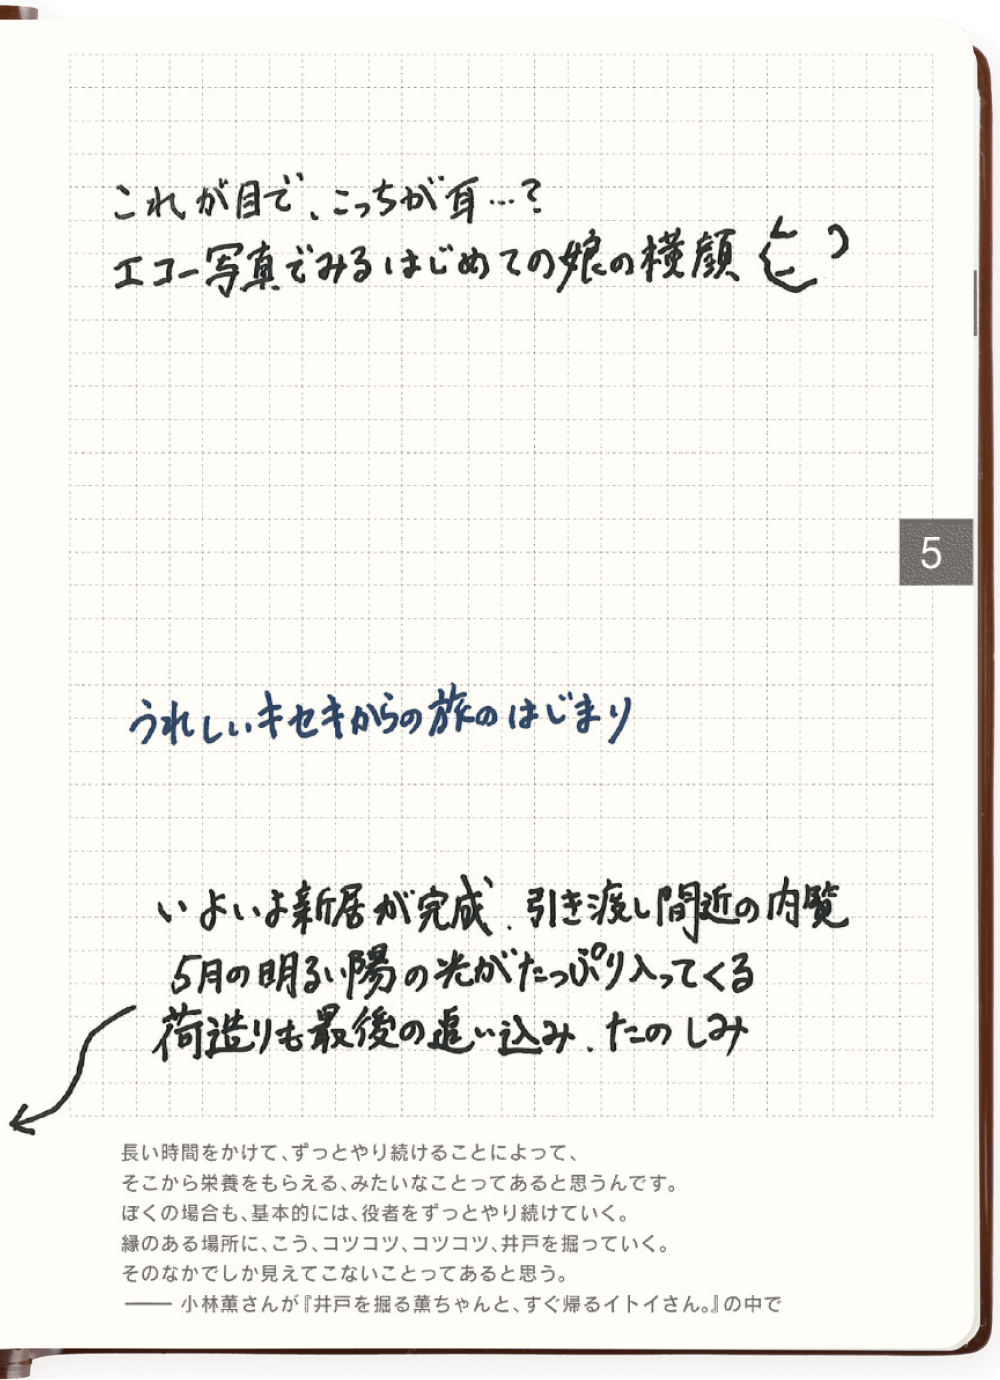 これが目で、こっちが耳…?
エコー写真でみるはじめての娘の横顔
5
うれしいキセキからの旅のはじまり
いよいよ新居が完成、引き渡し間近の内覧
5月の明るい陽の光がたっぷり入ってくる
荷造りも最後の追い込み、たのしみ
長い時間をかけて、ずっとやり続けることによって、
そこから栄養をもらえる、みたいなことってあると思うんです。
ぼくの場合も、基本的には、役者をずっとやり続けていく。
縁のある場所に、こう、コツコツ、コツコツ、井戸を掘っていく。
そのなかでしか見えてこないことってあると思う。
—— 小林薫さんが『井戸を掘る薫ちゃんと、すぐ帰るイトイさん。』の中で